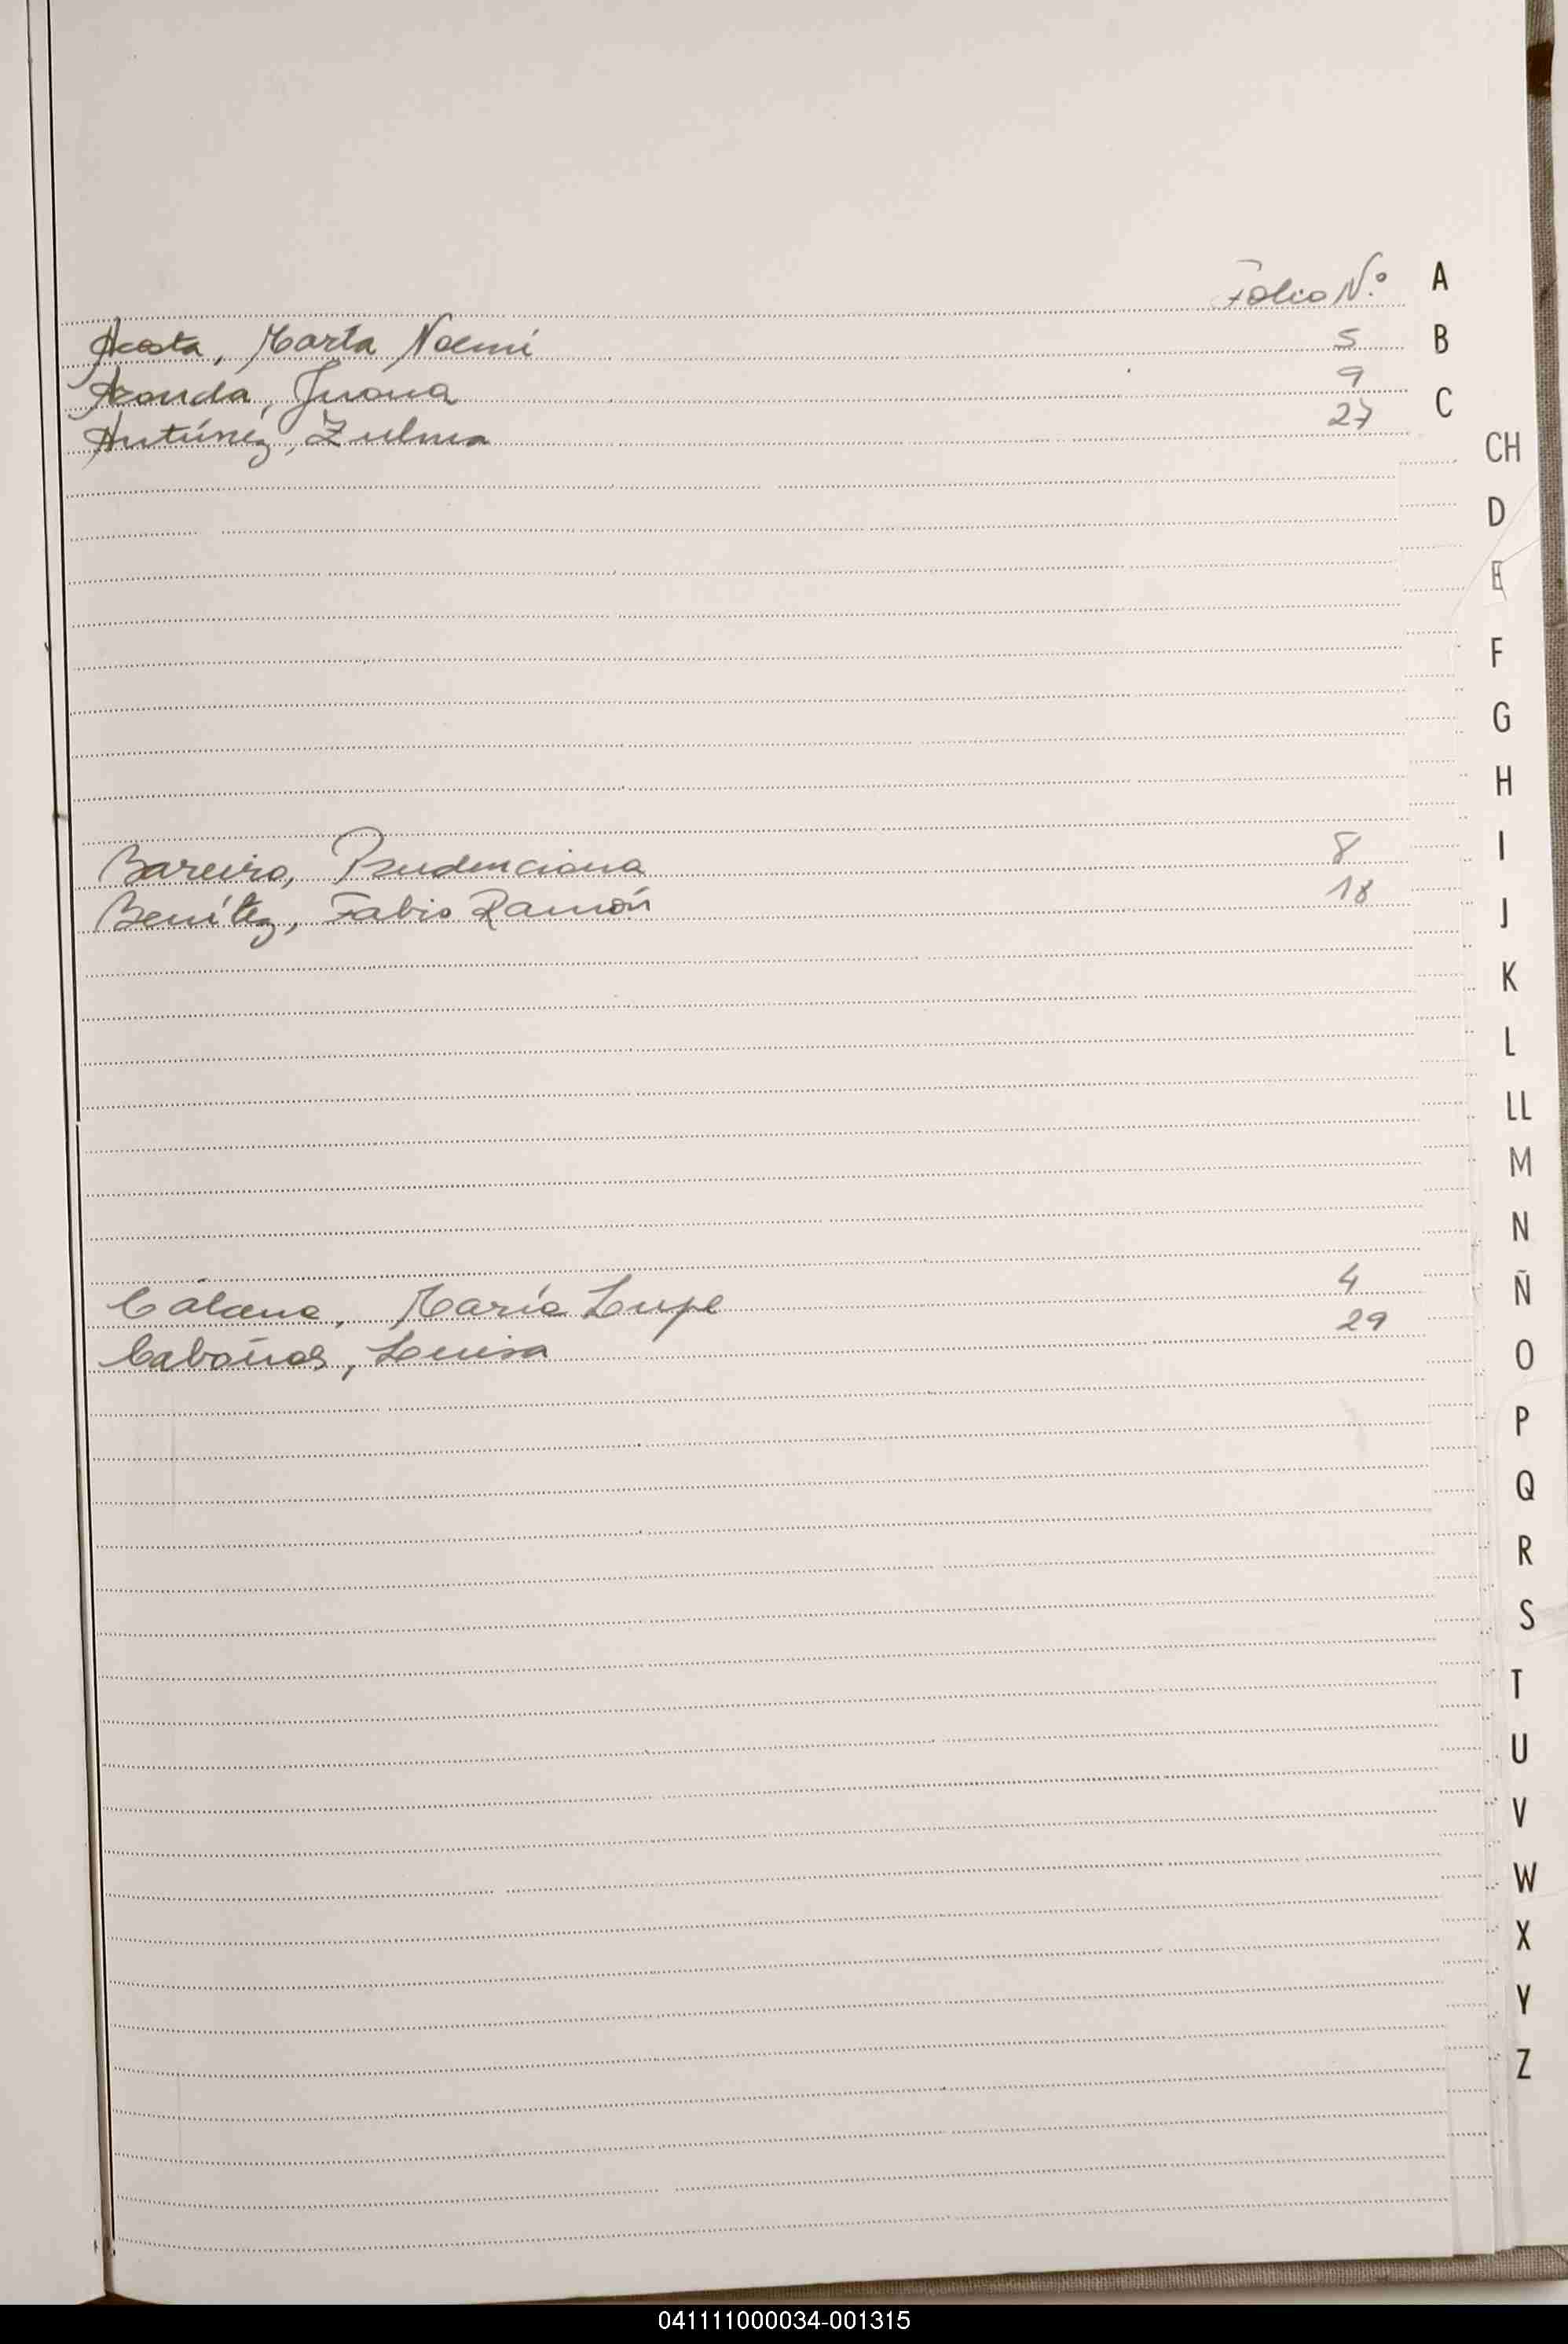 Folio N.º
A
Acosta, Marta Noemí 5
B
Aranda, Juana 9
C
Antúnez, Zulma 27
CH
D
E
F
G
H
Bareiro, Prudenciana 8
I
Benítez, Fabio Ramón 18
J
K
L
LL
M
N
María Lupe 4
Ñ
Cabañas, Luisa 29
O
P
Q
R
S
T
U
V
W
X
Y
Z
041111000034-001315